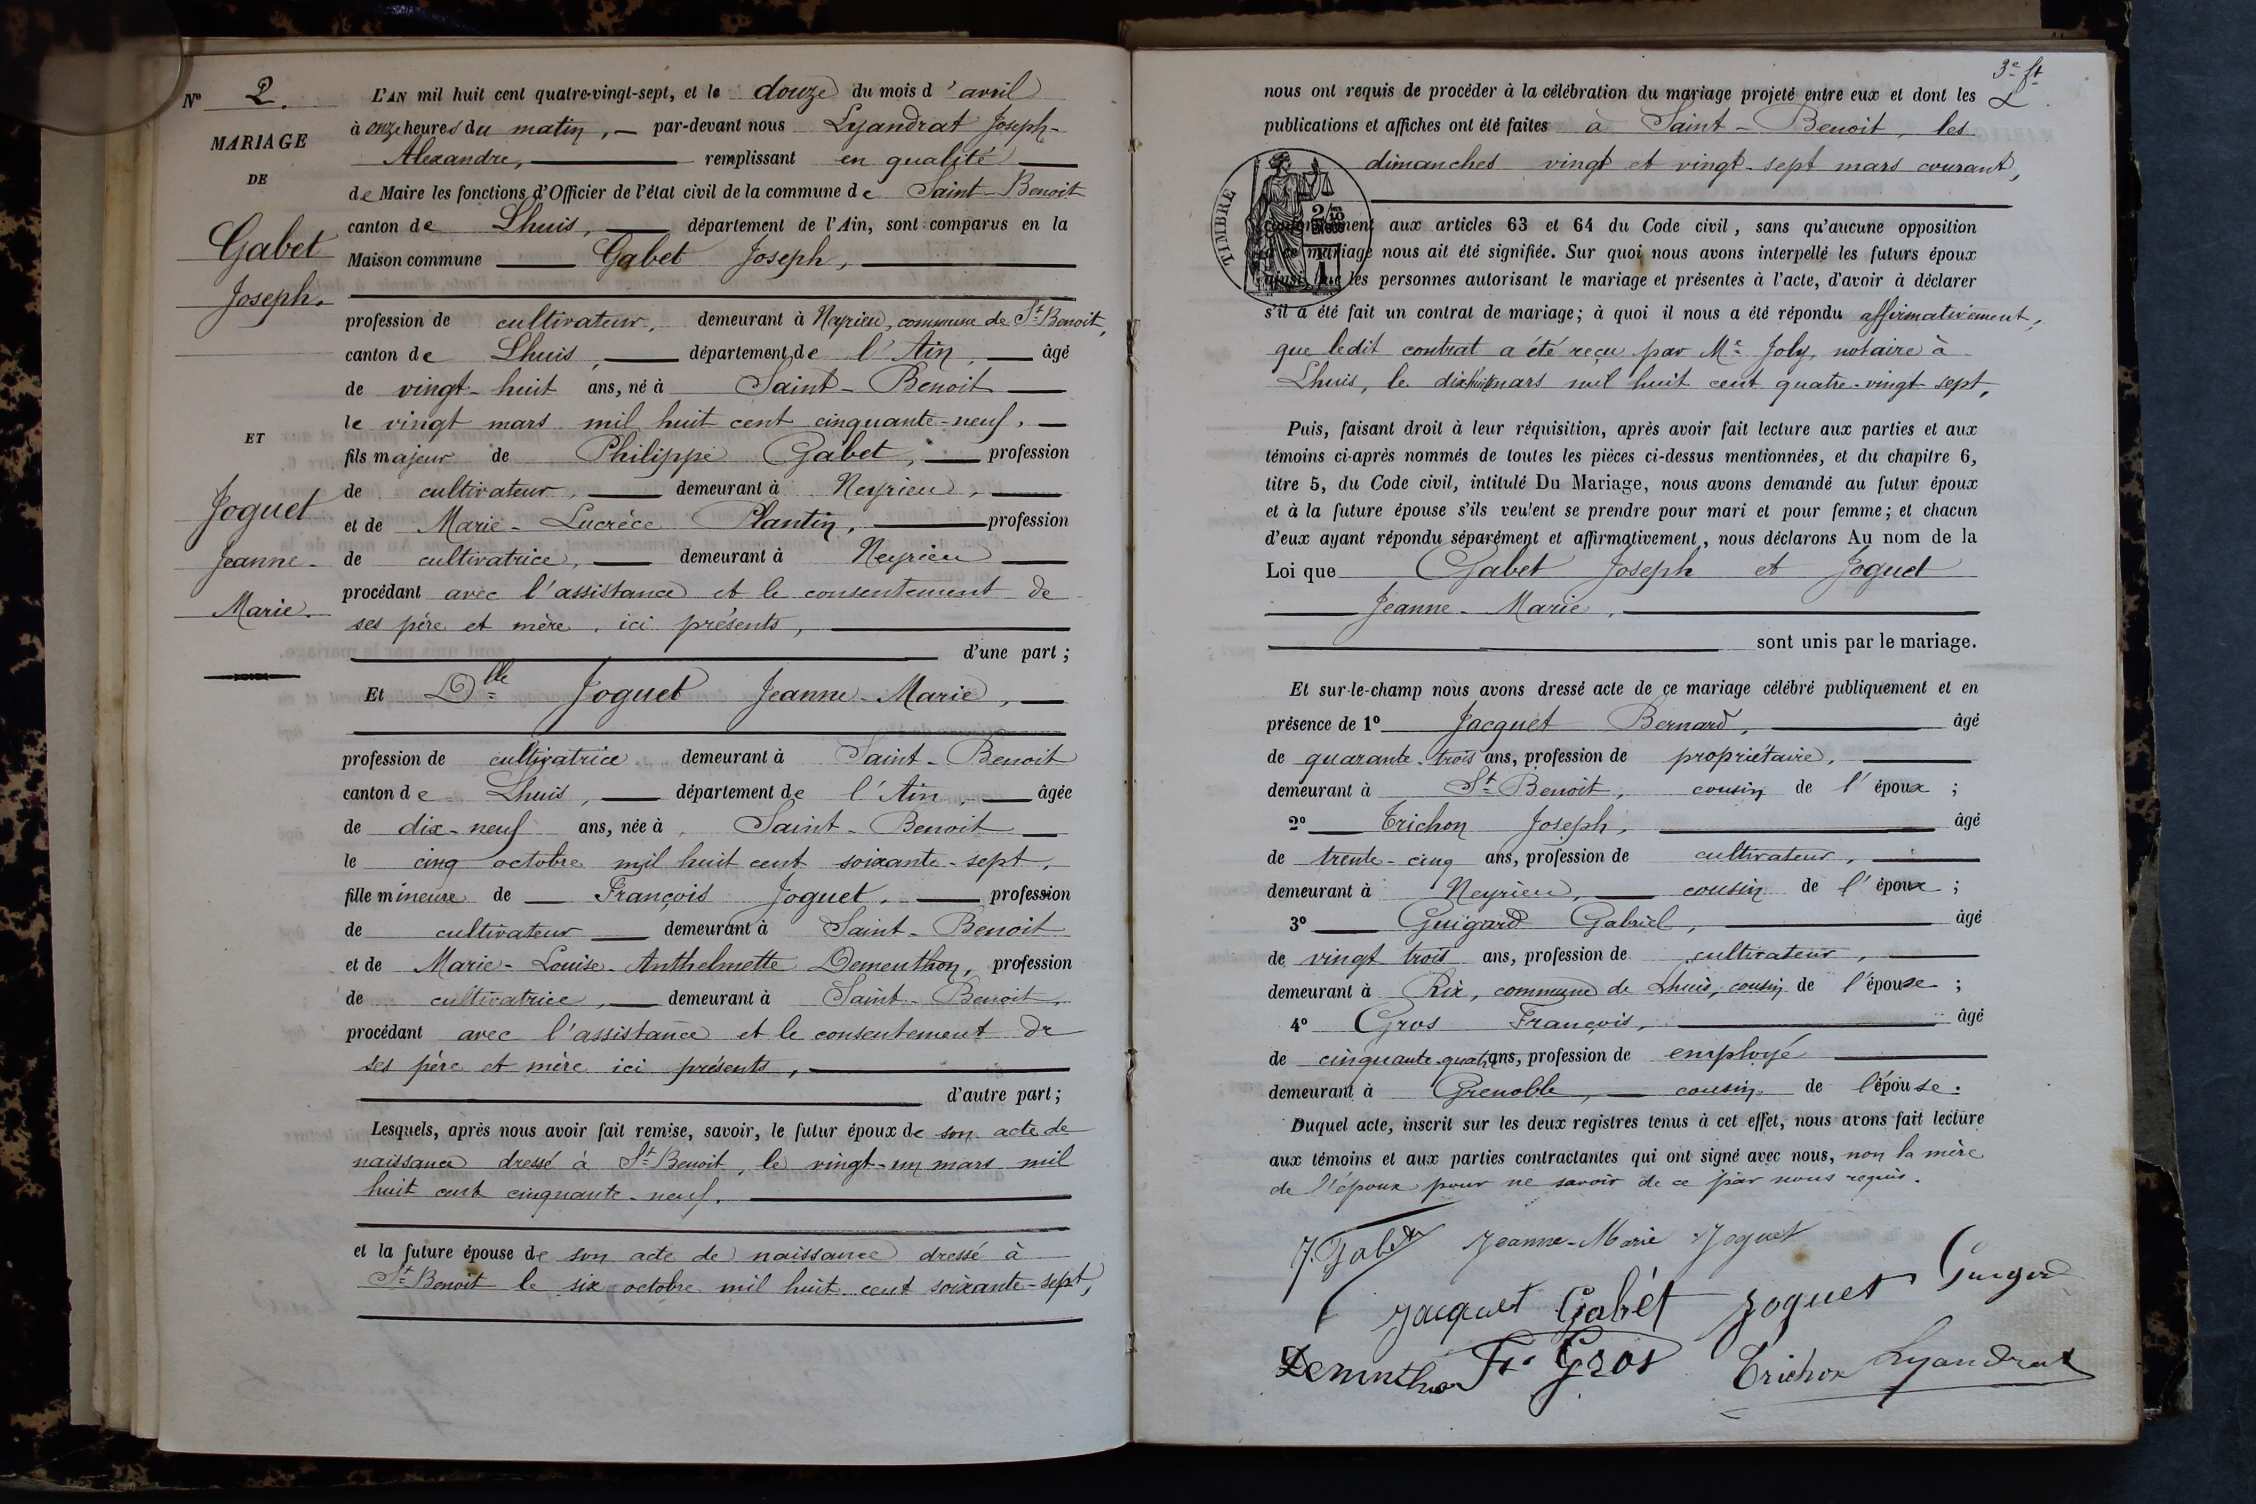 N° 2.
MARIAGE
DE
Gabet
Joseph.
ET
Joguet
Jeanne-
Marie.
L'AN mil huit cent quatre-vingt-sept, et le douze du mois d'avril
à onze heures du matin, par-devant nous Lyandrat Joseph-
Alexandre, remplissant en qualité
de Maire les fonctions d'Officier de l'état civil de la commune de Saint-Benoit
canton de Lhuis, département de l'Ain, sont comparus en la
Maison commune Gabet Joseph,
profession de cultivateur, demeurant à Neyrieu, commune de St Benoit,
canton de Lhuis, département de l'Ain, âgé
de vingt-huit ans, né à Saint-Benoit
le vingt mars mil huit cent cinquante-neuf,
fils majeur de Philippe Gabet, profession
de cultivateur, demeurant à Neyrieu,
et de Marie-Lucrèce Plantin, profession
de cultivatrice, demeurant à Neyrieu
procédant avec l'assistance et le consentement de
ses père et mère, ici présents,
d'une part;
Et Dlle Joguet Jeanne-Marie,
profession de cultivatrice demeurant à Saint-Benoit
canton de Lhuis, département de l'Ain, âgée
de dix-neuf ans, née à Saint-Benoit
le cinq octobre mil huit cent soixante-sept,
fille mineure de François Joguet, profession
de cultivateur demeurant à Saint-Benoit
et de Marie-Louise-Anthelmette Dementhon, profession
de cultivatrice, demeurant à Saint-Benoit,
procédant avec l'assistance et le consentement de
ses père et mère ici présents,
d'autre part;
Lesquels, après nous avoir fait remise, savoir, le futur époux de son acte de
naissance dressé à St Benoit, le vingt-un mars mil
huit cent cinquante-neuf.
et la future épouse de son acte de naissance dressé à
St Benoit le six octobre mil huit cent soixante-sept,
3e ft
nous ont requis de procéder à la célébration du mariage projeté entre eux et dont les
publications et affiches ont été faites à Saint-Benoit, les
dimanches vingt et vingt-sept mars courant,
TIMBRE
conformément aux articles 63 et 64 du Code civil, sans qu'aucune opposition
à ce mariage nous ait été signifiée. Sur quoi nous avons interpellé les futurs époux
ainsi que les personnes autorisant le mariage et présentes à l'acte, d'avoir à déclarer
s'il a été fait un contrat de mariage; à quoi il nous a été répondu affirmativement,
que ledit contrat a été reçu par Me Joly, notaire à
Lhuis, le dix-huit mars mil huit cent quatre-vingt sept,
Puis, faisant droit à leur réquisition, après avoir fait lecture aux parties et aux
témoins ci-après nommés de toutes les pièces ci-dessus mentionnées, et du chapitre 6,
titre 5, du Code civil, intitulé Du Mariage, nous avons demandé au futur époux
et à la future épouse s'ils veulent se prendre pour mari et pour femme; et chacun
d'eux ayant répondu séparément et affirmativement, nous déclarons Au nom de la
Loi que Gabet Joseph et Joguet
Jeanne-Marie,
sont unis par le mariage.
Et sur-le-champ nous avons dressé acte de ce mariage célébré publiquement et en
présence de 1° Jacquet Bernard, âgé
de quarante-trois ans, profession de propriétaire,
demeurant à St Benoit, cousin de l'époux;
2° Trichon Joseph, âgé
de trente-cinq ans, profession de cultivateur,
demeurant à Neyrieu, cousin de l'époux;
3° Guigard Gabriel, âgé
de vingt trois ans, profession de cultivateur,
demeurant à Rix, commune de Lhuis, cousin de l'épouse;
4° Gros François, âgé
de cinquante-quatre ans, profession de employé
demeurant à Grenoble, cousin de l'épouse.
Duquel acte, inscrit sur les deux registres tenus à cet effet, nous avons fait lecture
aux témoins et aux parties contractantes qui ont signé avec nous, non la mère
de l'époux pour ne savoir de ce par nous requis.
J. Gabet Jeanne-Marie Joguet
Jacquet Gabet Joguet Guigard
Dementhon Fs Gros Trichon Lyandrat